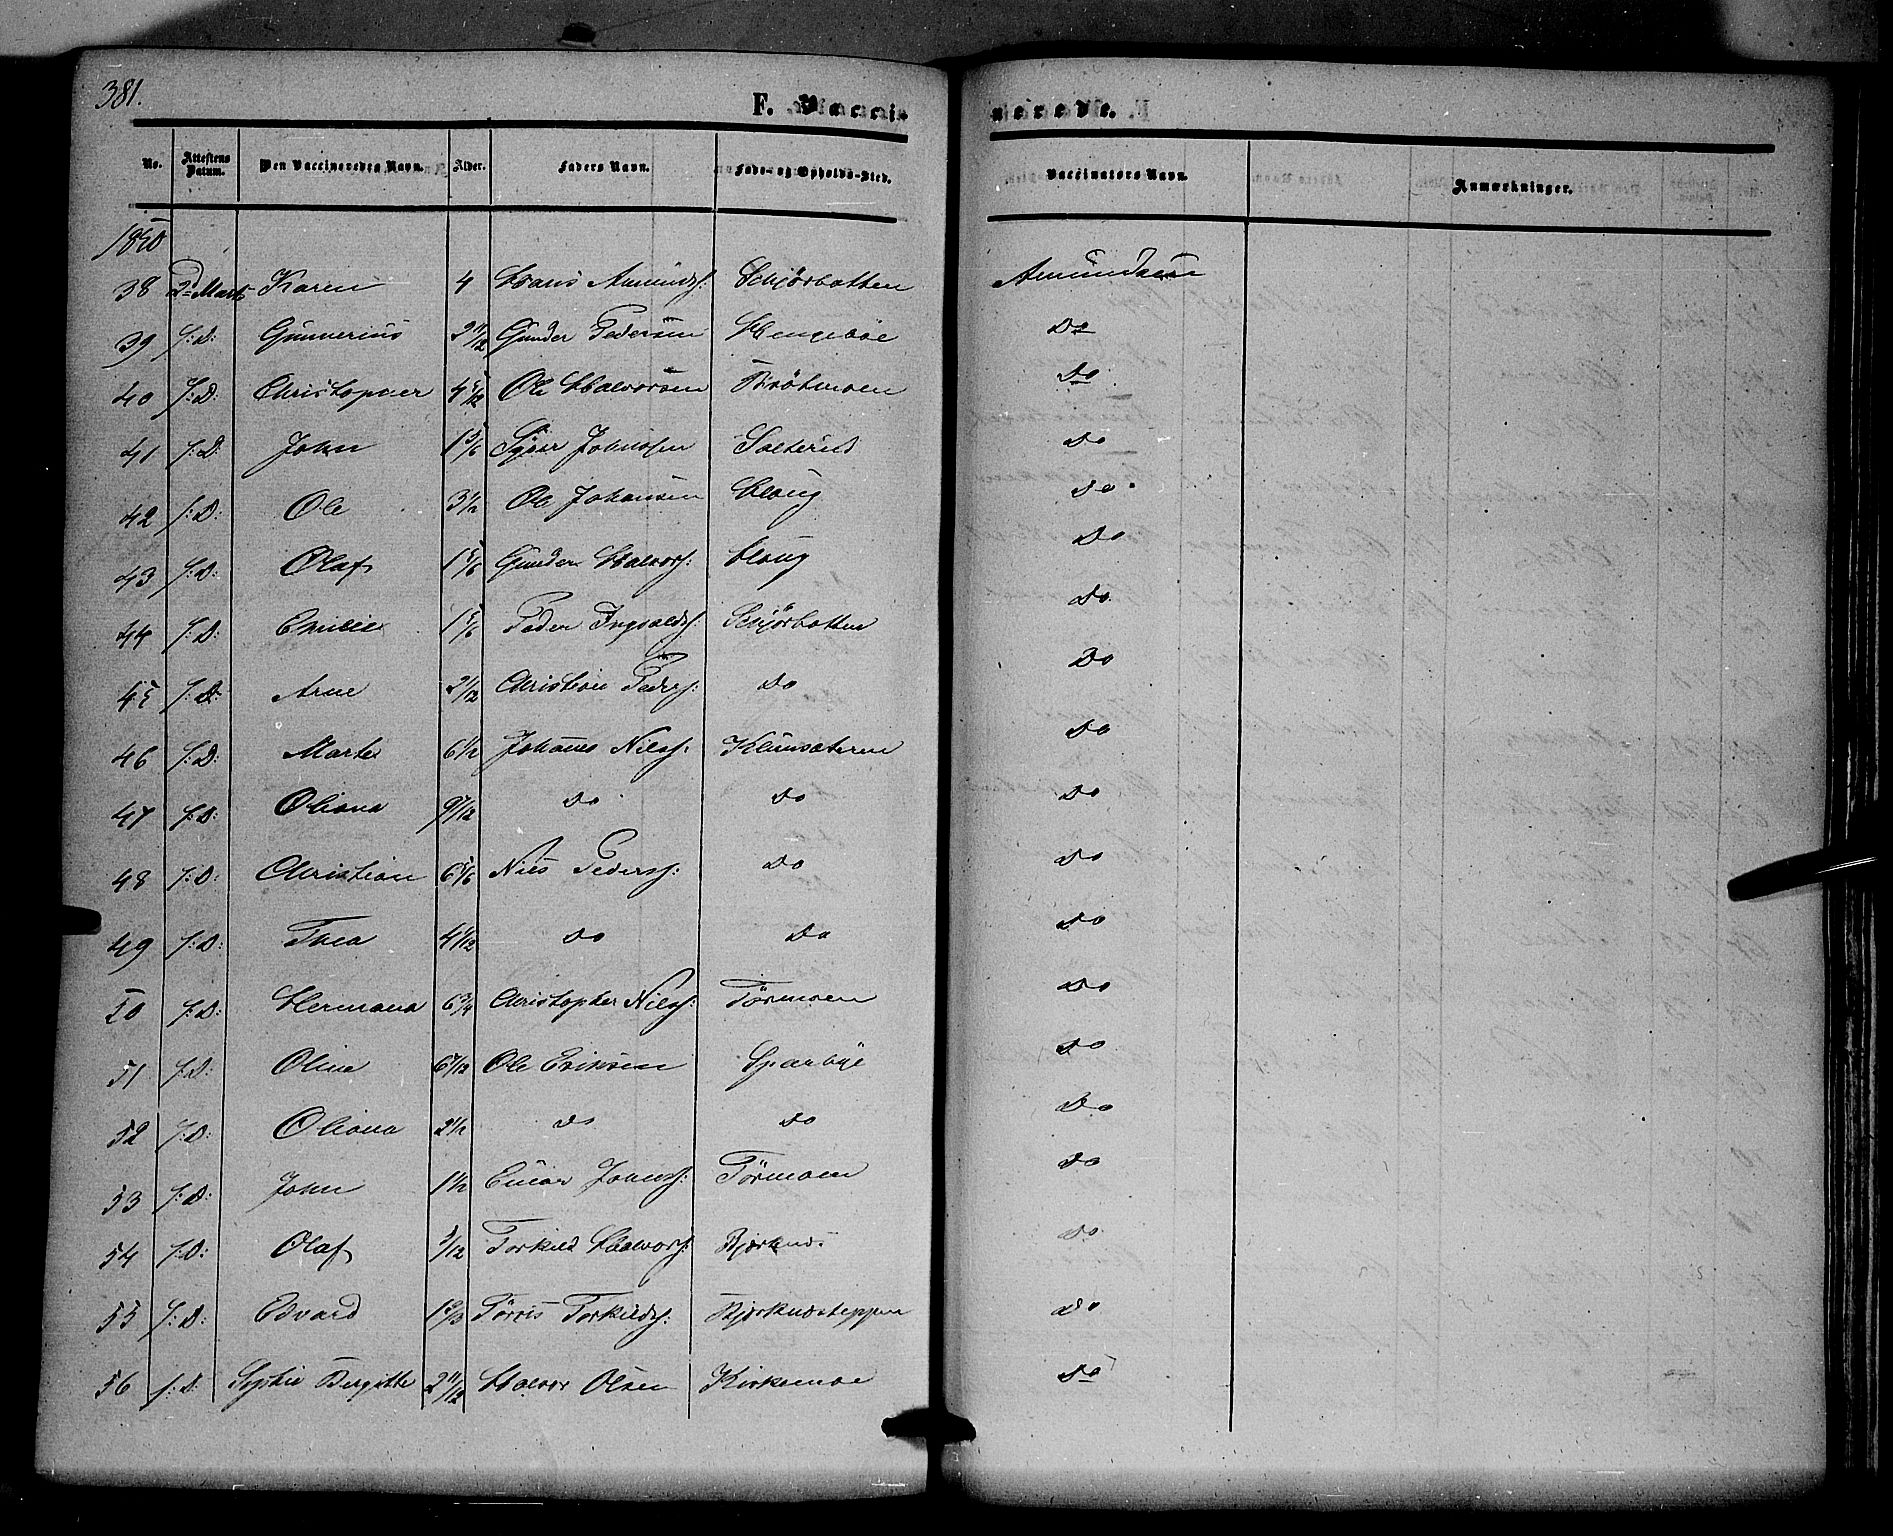 381.
F. Vaccinerede.
No. Attestens Datum. Den Vaccineredes Navn. Alder. Faders Navn. Føde- og Opholds-Sted. Vaccinators Navn. Anmærkninger.
1850
38 2den Marts Karen 4 Hans Amunds: Schjørbotten Amundsen
39 f: D: Gunnerius 2 11/12 Gunder Pedersen Hengeböe Do
40 f: D: Christopher 4 5/12 Ole Halvorsen Brøtmoen Do
41 f: D: John 1 5/6 Syver Johnssen Sæterud Do
42 f: D: Ole 3 1/2 Ole Johansen Do
43 f: D: Olaf 1 5/6 Gunder Halvors: Do
44 f: D: Emilie 1 5/6 Peder Ingvalds: Schjørbotten Do
45 f: D: Arne 2 1/12 Christian Peders: Do Do
46 f: D: Marte 6 1/2 Johannes Nilss: Klunsæteren Do
47 f: D: Oliana 9 7/12 Do Do Do
48 f: D: Christian 6 5/6 Niels Pederss: Do Do
49 f: D: Thea 4 1/12 Do Do Do
50 f: D: Hermana 6 3/4 Christopher Nilss: Tørmoen Do
51 f: D: Oline 6 7/12 Ole Eriksen Sparbye Do
52 f: D: Oliana 2 1/2 Do Do Do
53 f: D: John 1 1/2 Einar Johnss: Tørmoen Do
54 f: D: Olaf 5/12 Torkild Halvors: Bjerknes Do
55 f: D: Edvard 1 2/3 Tørris Torkilds: Do
56 f: D: Sophie Birgitte 2 11/12 Halvor Olsen Kirkemoe Do